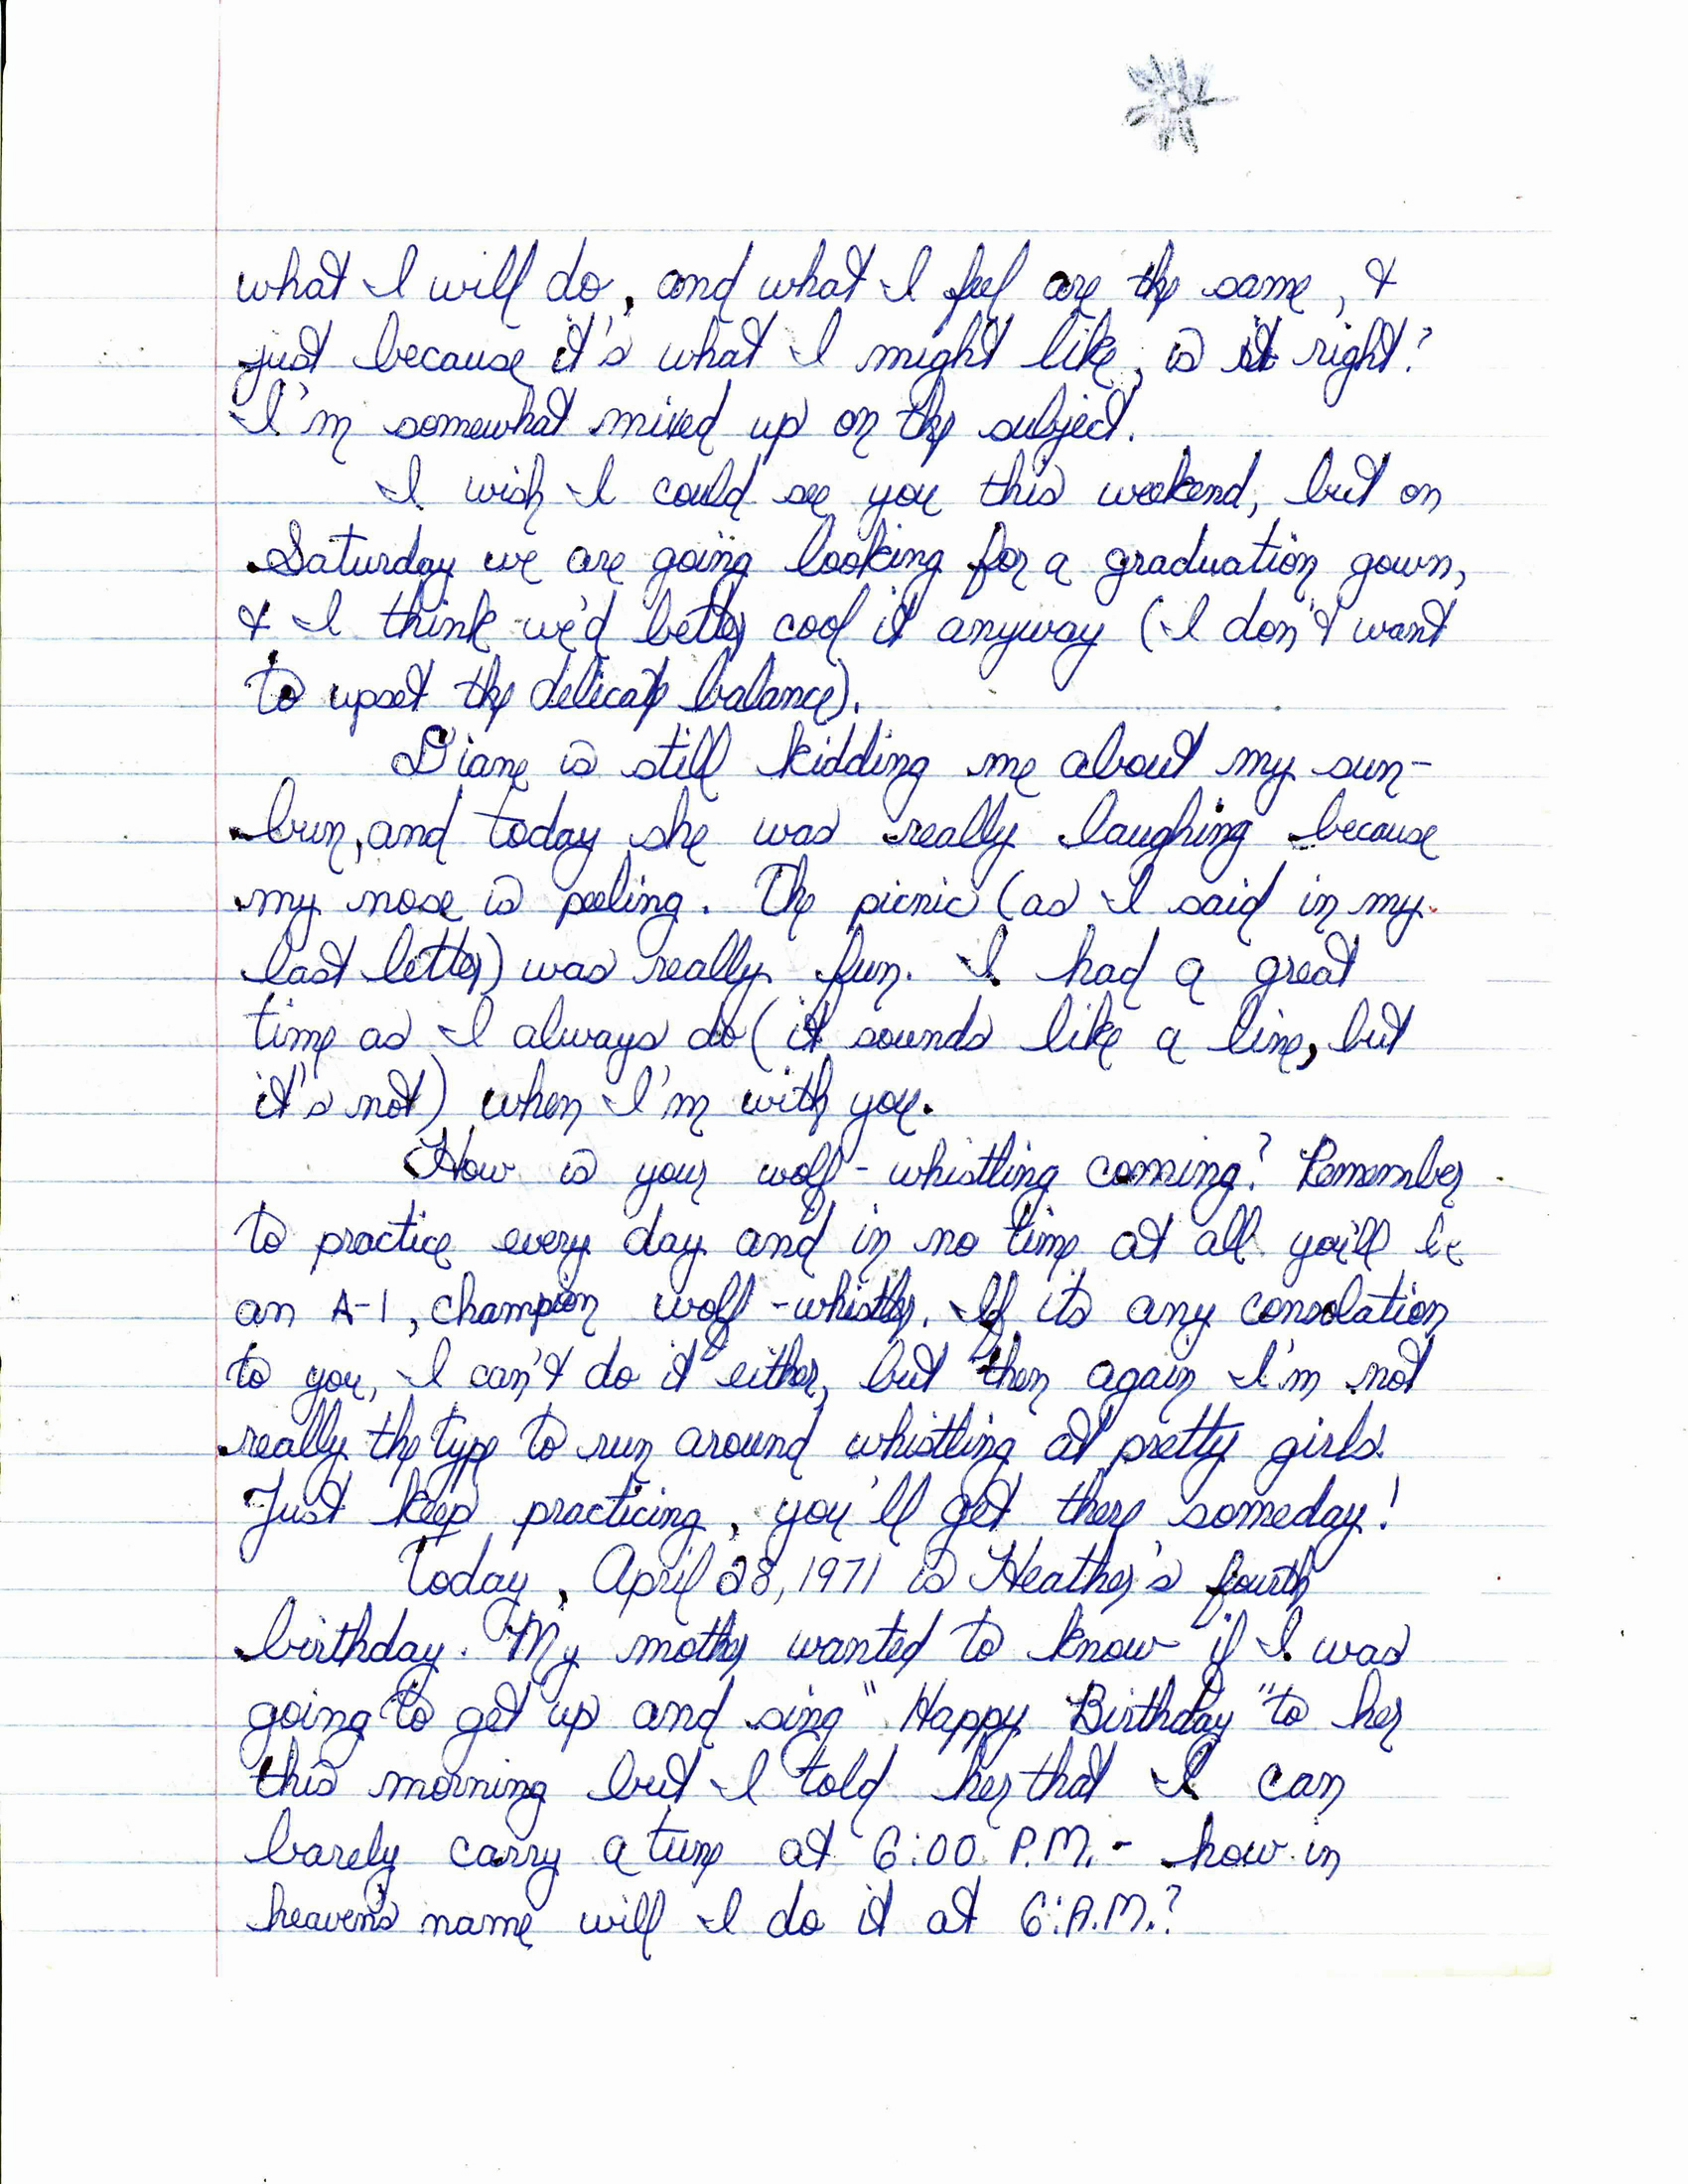 what I will do, and what I feel are the same, &
just because it's what I might like, is it right?
I'm somewhat mixed up on the subject.
I wish I could see you this weekend, but on
Saturday we are going looking for a graduation gown,
& I think we'd better cool it anyway (I don't want
to upset the delicate balance).
Diane is still kidding me about my sun-
burn, and today she was really laughing because
my nose is peeling. The picnic (as I said in my
last letter) was really fun. I had a great
time as I always do (it sounds like a line, but
it's not) when I'm with you.
How is your wolf-whistling coming? Remember
to practice every day and in no time at all you'll be
an A-1, champion wolf-whistler. If its any consolation
to you, I can't do it either, but then again I'm not
really the type to run around whistling at pretty girls.
Just keep practicing, you'll get there someday!
Today, April 28, 1971 is Heather's fourth
birthday. My mother wanted to know if I was
going to get up and sing "Happy Birthday" to her
this morning but I told her that I can
barely carry a tune at 6:00 P.M. - how in
heavens name will I do it at 6:A.M.?